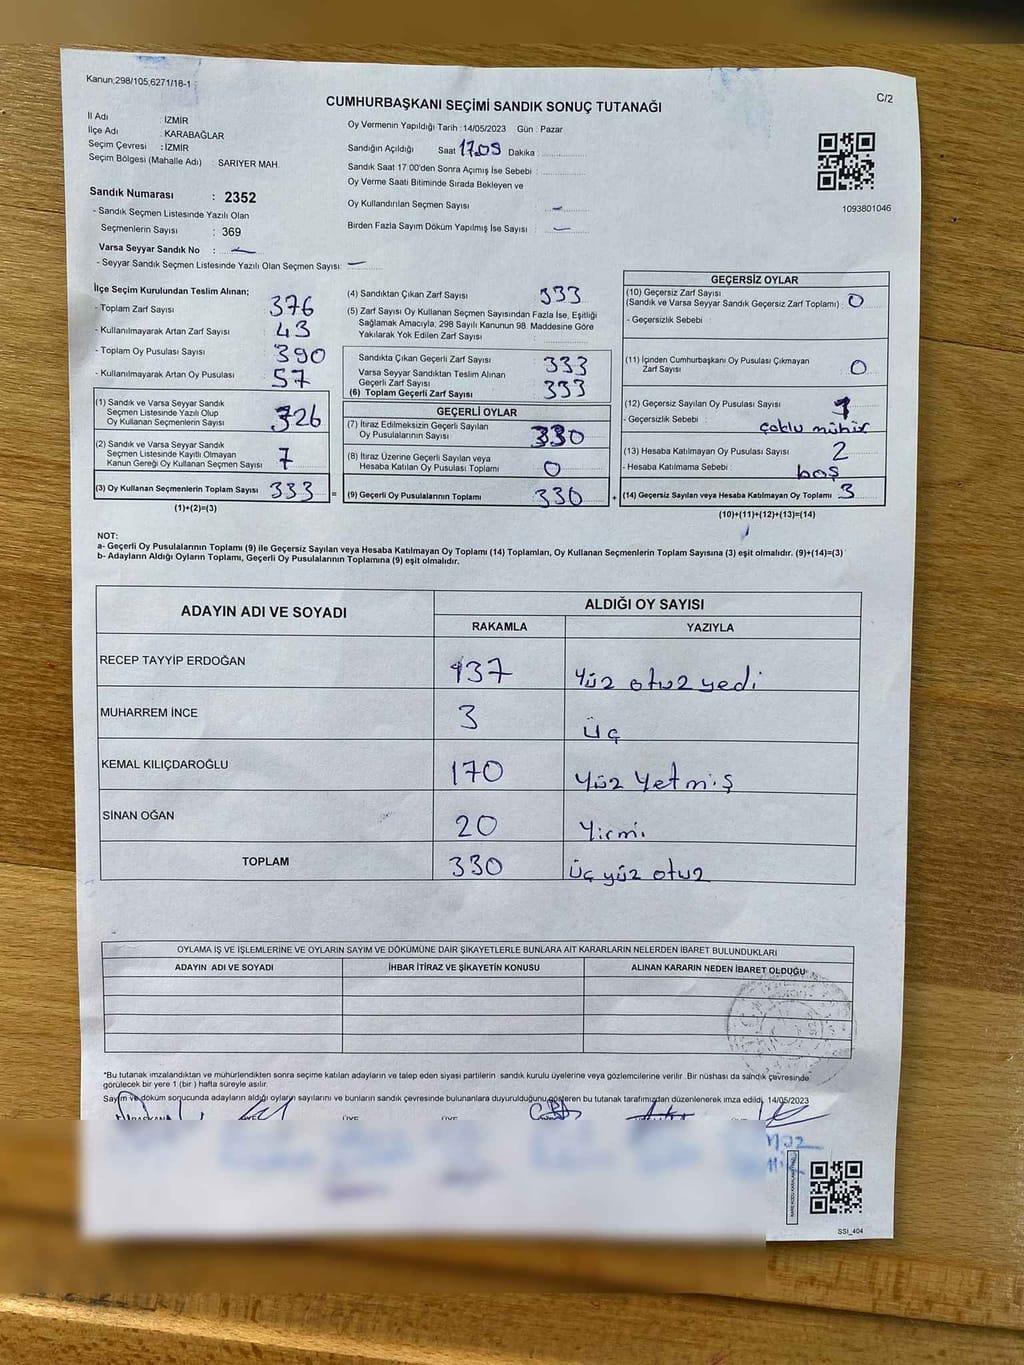 Kanun;298/105,6271/18-1
C/2
CUMHURBAŞKANI SEÇİMİ SANDIK SONUÇ TUTANAĞI
İl Adı : İZMİR
İlçe Adı : KARABAĞLAR
Seçim Çevresi : İZMİR
Seçim Bölgesi (Mahalle Adı) : SARIYER MAH.
Oy Vermenin Yapıldığı Tarih :14/05/2023 Gün : Pazar
Sandığın Açıldığı Saat 17.09 Dakika :
Sandık Saat 17:00'den Sonra Açımış İse Sebebi :
Oy Verme Saati Bitiminde Sırada Bekleyen ve
Oy Kullandırılan Seçmen Sayısı : –
Birden Fazla Sayım Döküm Yapılmış İse Sayısı : –
1093801046
Sandık Numarası : 2352
- Sandık Seçmen Listesinde Yazılı Olan
Seçmenlerin Sayısı : 369
Varsa Seyyar Sandık No : –
- Seyyar Sandık Seçmen Listesinde Yazılı Olan Seçmen Sayısı: –
İlçe Seçim Kurulundan Teslim Alınan;
- Toplam Zarf Sayısı : 376
- Kullanılmayarak Artan Zarf Sayısı : 43
- Toplam Oy Pusulası Sayısı : 390
- Kullanılmayarak Artan Oy Pusulası : 57
(1) Sandık ve Varsa Seyyar Sandık
Seçmen Listesinde Yazılı Olup
Oy Kullanan Seçmenlerin Sayısı : 326
(2) Sandık ve Varsa Seyyar Sandık
Seçmen Listesinde Kayıtlı Olmayan
Kanun Gereği Oy Kullanan Seçmen Sayısı : 7
(3) Oy Kullanan Seçmenlerin Toplam Sayısı : 333
(1)+(2)=(3)
=
(4) Sandıktan Çıkan Zarf Sayısı : 333
(5) Zarf Sayısı Oy Kullanan Seçmen Sayısından Fazla İse, Eşitliği
Sağlamak Amacıyla; 298 Sayılı Kanunun 98. Maddesine Göre
Yakılarak Yok Edilen Zarf Sayısı :
Sandıkta Çıkan Geçerli Zarf Sayısı : 333
Varsa Seyyar Sandıktan Teslim Alınan
Geçerli Zarf Sayısı :
(6) Toplam Geçerli Zarf Sayısı : 333
GEÇERLİ OYLAR
(7) İtiraz Edilmeksizin Geçerli Sayılan
Oy Pusulalarının Sayısı : 330
(8) İtiraz Üzerine Geçerli Sayılan veya
Hesaba Katılan Oy Pusulası Toplamı : 0
(9) Geçerli Oy Pusulalarının Toplamı : 330
+
GEÇERSİZ OYLAR
(10) Geçersiz Zarf Sayısı
(Sandık ve Varsa Seyyar Sandık Geçersiz Zarf Toplamı) : 0
- Geçersizlik Sebebi :
(11) İçinden Cumhurbaşkanı Oy Pusulası Çıkmayan
Zarf Sayısı : 0
(12) Geçersiz Sayılan Oy Pusulası Sayısı : 1
- Geçersizlik Sebebi : çoklu mühür
(13) Hesaba Katılmayan Oy Pusulası Sayısı : 2
- Hesaba Katılmama Sebebi : boş
(14) Geçersiz Sayılan veya Hesaba Katılmayan Oy Toplamı : 3
(10)+(11)+(12)+(13)=(14)
NOT:
a- Geçerli Oy Pusulalarının Toplamı (9) ile Geçersiz Sayılan veya Hesaba Katılmayan Oy Toplamı (14) Toplamları, Oy Kullanan Seçmenlerin Toplam Sayısına (3) eşit olmalıdır. (9)+(14)=(3)
b- Adayların Aldığı Oyların Toplamı, Geçerli Oy Pusulalarının Toplamına (9) eşit olmalıdır.
ADAYIN ADI VE SOYADI
ALDIĞI OY SAYISI
RAKAMLA YAZIYLA
RECEP TAYYİP ERDOĞAN 137 Yüz otuz yedi
MUHARREM İNCE 3 Üç
KEMAL KILIÇDAROĞLU 170 Yüz Yetmiş
SİNAN OĞAN 20 Yirmi
TOPLAM 330 Üç yüz otuz
OYLAMA İŞ VE İŞLEMLERİNE VE OYLARIN SAYIM VE DÖKÜMÜNE DAİR ŞİKAYETLERLE BUNLARA AİT KARARLARIN NELERDEN İBARET BULUNDUKLARI
ADAYIN ADI VE SOYADI İHBAR İTİRAZ VE ŞİKAYETİN KONUSU ALINAN KARARIN NEDEN İBARET OLDUĞU
*Bu tutanak imzalandıktan ve mühürlendikten sonra seçime katılan adayların ve talep eden siyasi partilerin sandık kurulu üyelerine veya gözlemcilerine verilir. Bir nüshası da sandık çevresinde
görülecek bir yere 1 (bir ) hafta süreyle asılır.
Sayım ve döküm sonucunda adayların aldığı oyların sayılarını ve bunların sandık çevresinde bulunanlara duyurulduğunu gösteren bu tutanak tarafımızdan düzenlenerek imza edildi. 14/05/2023
ÜYE ÜYE
SSI_404